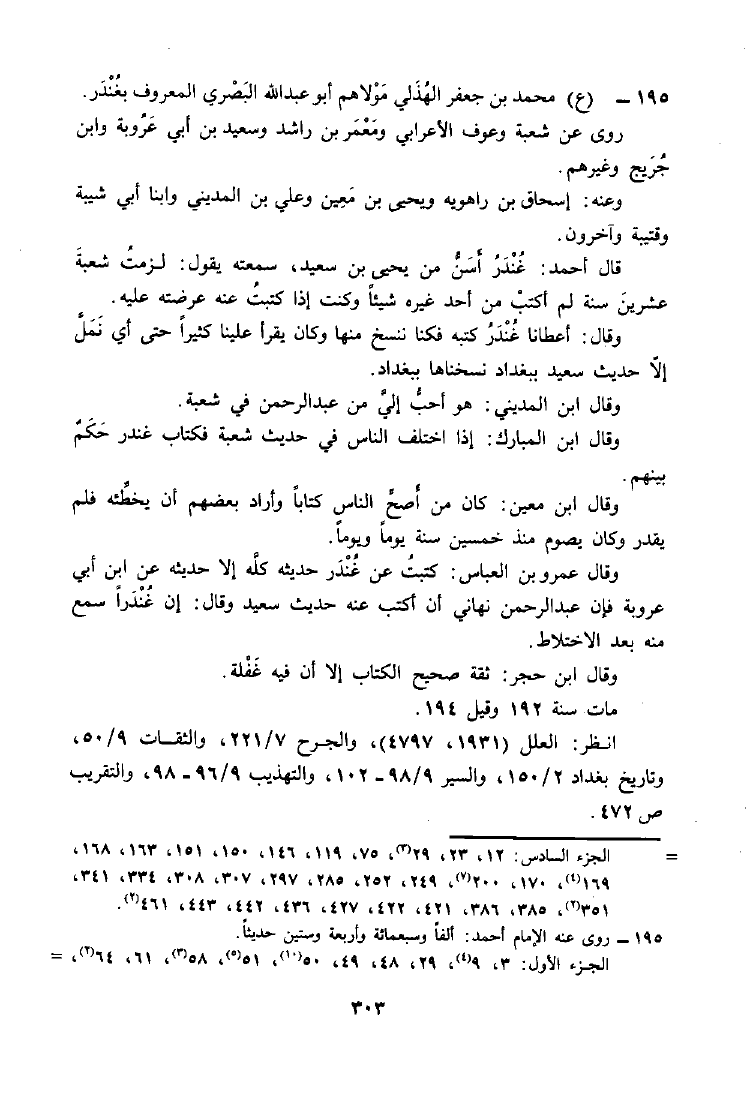 ١٩٥ ـ (ع) محمد بن جعفر الهُذَلي مَوْلاهم أبو عبدالله البَصْري المعروف بغُنْدَر.
روى عن شعبة وعوف الأعرابي ومَعْمَر بن راشد وسعيد بن أبي عَرُوبة وابن
جُرَيج وغيرهم.
وعنه: إسحاق بن راهويه ويحيى بن مَعِين وعلي بن المديني وابنا أبي شيبة
وقتيبة وآخرون.
قال أحمد: غُنْدَرُ أَسَنُّ من يحيى بن سعيد، سمعته يقول: لـزمتُ شعبةَ
عشرينَ سنة لم أكتبْ من أحد غيره شيئاً وكنت إذا كتبتُ عنه عرضته عليه.
وقال: أعطانا غُنْدَرُ كتبه فكنا ننسخ منها وكان يقرأ علينا كثيراً حتى أي نَمَلَّ
إلّا حديث سعيد ببغداد نسخناها ببغداد.
وقال ابن المديني: هو أحبُّ إليَّ من عبدالرحمن في شعبة.
وقال ابن المبارك: إذا اختلف الناس في حديث شعبة فكتاب غندر حَكَمٌ
بينهم.
وقال ابن معين: كان من أَصحِّ الناس كتاباً وأراد بعضهم أن يخطِّئه فلم
يقدر وكان يصوم منذ خمسين سنة يوماً ويوماً.
وقال عمرو بن العباس: كتبتُ عن غُنْدَر حديثه كلَّه إلا حديثه عن ابن أبي
عروبة فإن عبدالرحمن نهاني أن أكتب عنه حديث سعيد وقال: إن غُنْدَراً سمع
منه بعد الاختلاط.
وقال ابن حجر: ثقة صحيح الكتاب إلا أن فيه غَفْلة.
مات سنة ١٩٢ وقيل ١٩٤.
انـظر: العلل (١٩٣١، ٤٧٩٧)، والجـرح ٢٢١/٧، والثقـات ٥٠/٩،
وتاريخ بغداد ١٥٠/٢، والسير ٩٨/٩ـ ١٠٢، والتهذيب ٩٦/٩ ـ ٩٨، والتقريب
ص ٤٧٢.
= الجزء السادس: ١٢، ٢٣، ٢٩(٣)، ٧٥، ١١٩، ١٤٦، ١٥٠، ١٥١، ١٦٣، ١٦٨،
١٦٩(٤)، ١٧٠، ٢٠٠(٧)، ٢٤٩، ٢٥٢، ٢٨٥، ٢٩٧، ٣٠٧، ٣٠٨، ٣٣٤، ٣٤١،
٣٥١(٢)، ٣٨٥، ٣٨٦، ٤٢١، ٤٢٢، ٤٢٧، ٤٣٦، ٤٤٢، ٤٤٣، ٤٦١(٢).
١٩٥ ـ روى عنه الإمام أحمد: ألفاً وسبعمائة وأربعة وستين حديثاً.
الجـزء الأول: ٣، ٩(٤)، ٢٩، ٤٨، ٤٩، ٥٠(١٠)، ٥١(٥)، ٥٨(٣)، ٦١، ٦٤(٢)، =
٣٠٣